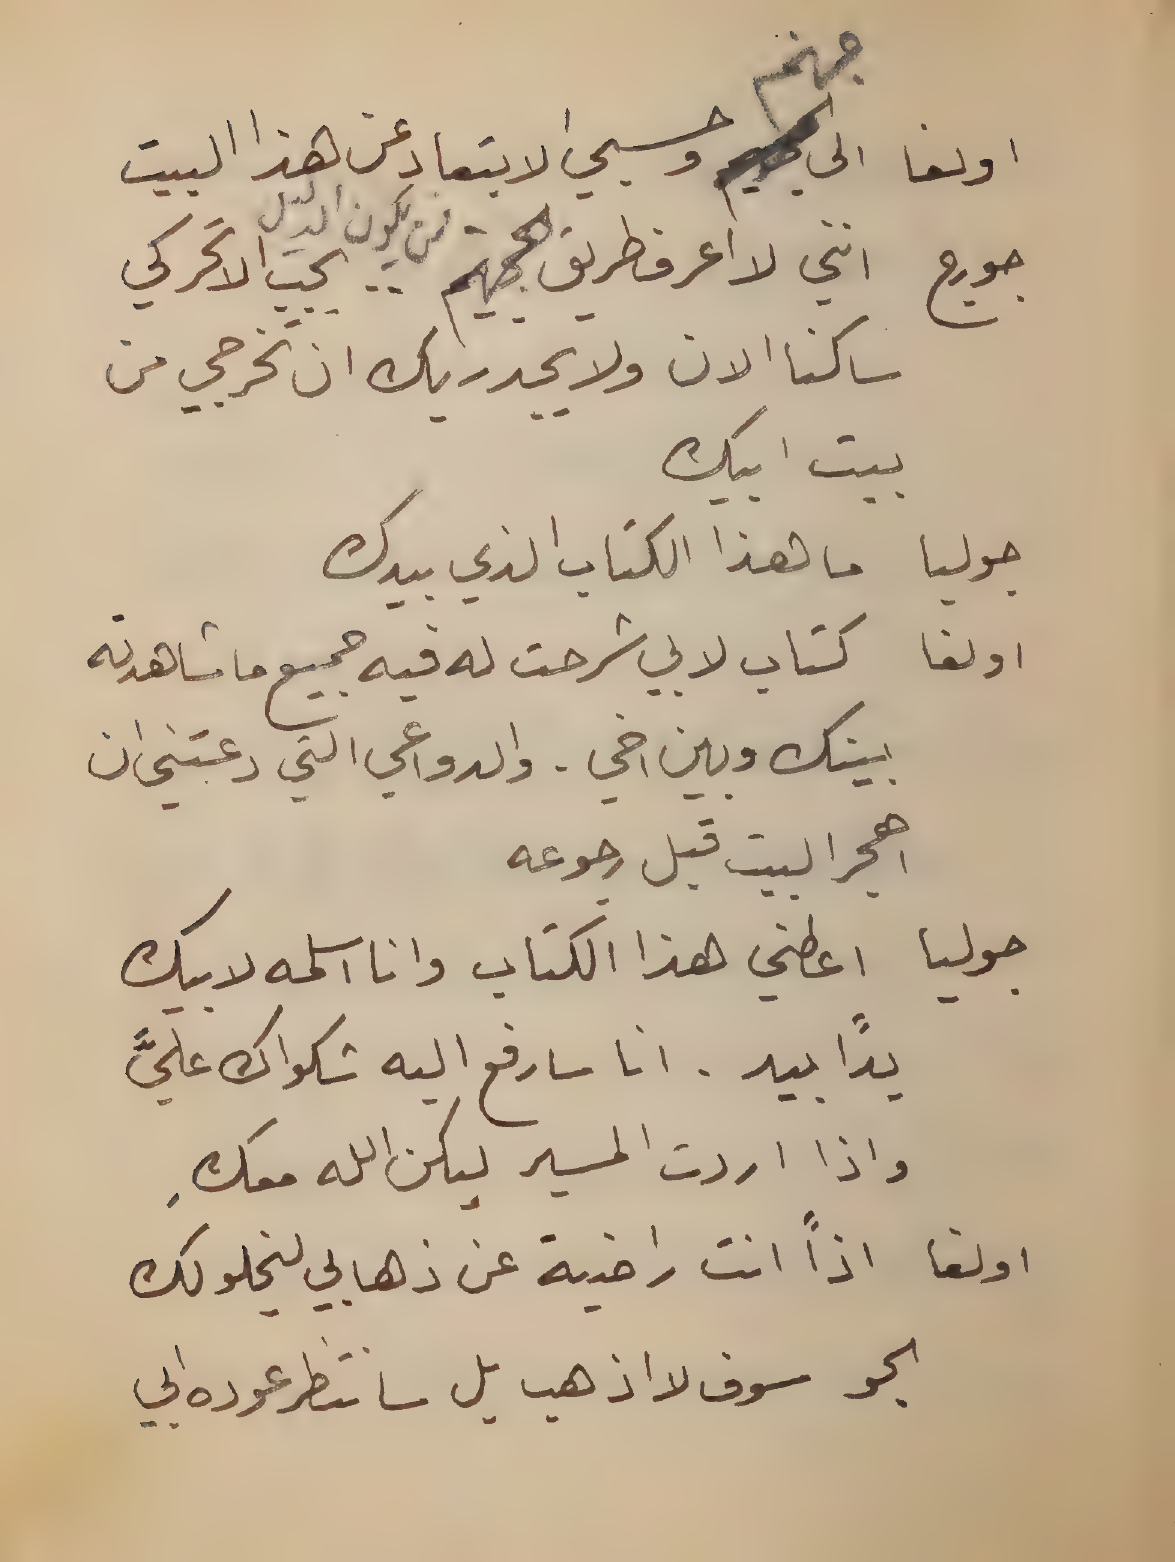 جهنم
اولغا الى الجحيم وحسبي الابتعاد عن هذا البيت
فمن يكون الدليل
جورج انني لا اعرف طريق جهنم .. يجب الا تحركي
ساكنا الان ولا يجدر بك ان تخرجي من
بيت ابيك
جوليا ما هذا الكتاب الذي بيدك
اولغا كتاب لابي شرحت له فيه جميع ما شاهدته
بينك وبين اخي . والدواعي التي دعتني ان
اهجر البيت قبل رجوعه
جوليا اعطني هذا الكتاب وانا اسلمه لابيك
يدًا بيد . انا سارفع اليه شكواك عليَّ
واذا اردت المسير ليكن الله معكِ
اولغا اذاً انت راضية عن ذهابي ليخلو لك
الجو سوف لا اذهب بل سانتظر عوده ابي